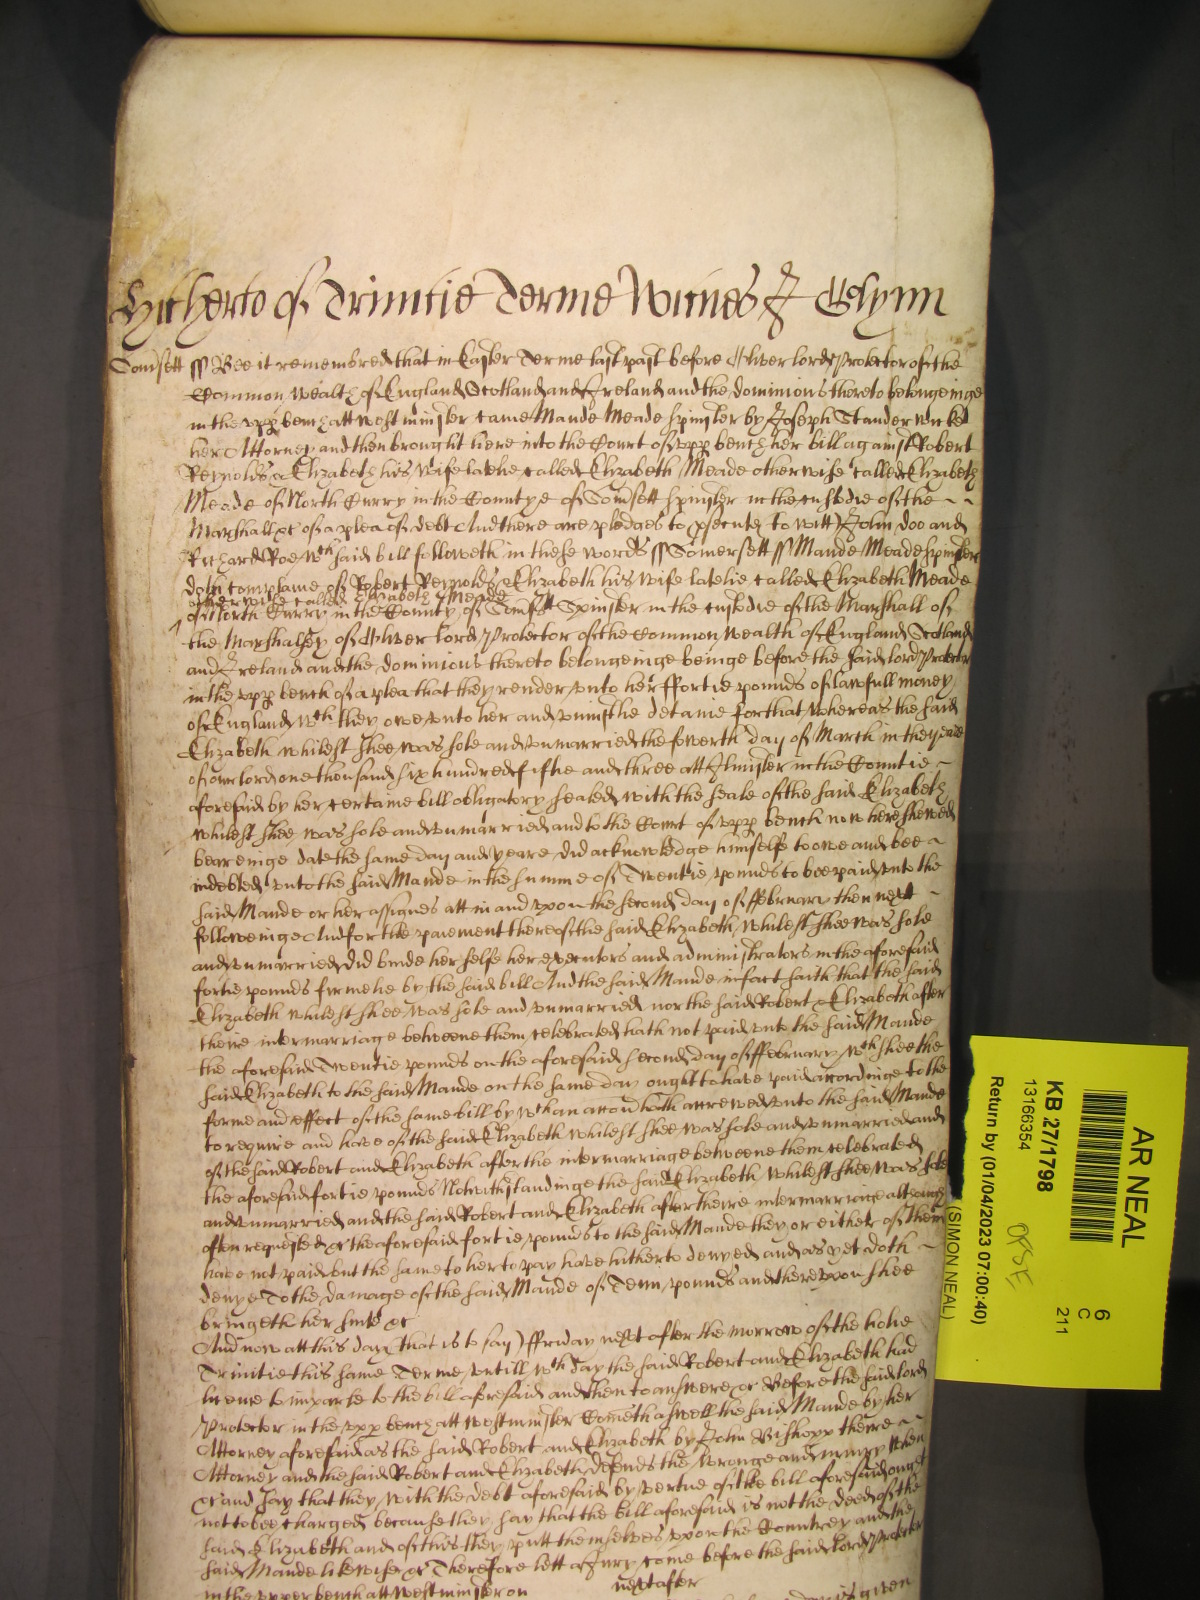 Hitherto of Trinitie Terme Witnes J Glynn
Somsett ss Bee it remembred that in Easter Terme last past before Oliver lord Protector of the
Common wealth of England Scotland and Ireland and the dominions thereto belongeinge
in the upp bench att Westminster came Maude Meade Spinster by Joseph Standerwicke
her Attorney and then brought here into the Court of upp bench her bill against Robert
Reynolds & Elizabeth his wife latelie called Elizabeth Meade otherwise called Elizabeth
Meade of North Curry in the Countye of Somsett Spinster in the custodie of the
Marshall &c of a plea of debt And there are pledges to psecute to witt John Doo and
Richard Roe wch said bill followeth in these words ss Somersett ss Maude Meade Spinster
doth complaine of Robert Reynolds & Elizabeth his wife latelie called Elizabeth Meade
otherwise called Elizabeth Meade
of North Curry in the County of Somsett Spinster in the custodie of the Marshall of
the Marshalsey of Oliver lord Protector of the Common wealth of England Scotland
and Ireland and the dominions thereto belongeinge beinge before the said lord Protector
in the upp bench of a plea that they render unto her ffortie pounds of lawfull money
of England wch they owe unto her and uniustlie detaine for that whereas the said
Elizabeth whilest shee was sole and unmarried the fowerth day of March in the yeare
of our lord one thousand six hundred fiftie and three att Ilmister in the Countie
aforesaid by her certaine bill obligatory sealed with the seale of the said Elizabeth
whilest shee was sole and unmarried and to the Court of upp bench now here shewed
beareinge date the same day and yeare did acknowledge himselfe to owe and bee
indebted unto the said Maude in the summe of Twentie pounds to bee paid unto the
said Maude or her assignes att in and upon the second day of ffebruary then next
followeinge And for the paiement thereof the said Elizabeth whilest shee was sole
and unmarried did binde her selfe her executors and administrators in the aforesaid
fortie pounds firmelie by the said bill And the said Maude in fact saith that the said
Elizabeth whilest shee was sole and unmarried nor the said Robert & Elizabeth after
theire intermarriage betweene them celebrated hath not paid unto the said Maude
the aforesaid Twentie pounds on the aforesaid second day of ffebruary wch shee the
said Elizabeth to the said Maude on the same day ought to have paid accordinge to the
forme and effect of the same bill by wch an accon hath accrewed unto the said Maude
to require and have of the said Elizabeth whilest shee was sole and unmarried and
of the said Robert and Elizabeth after the intermarriage betweene them celebrated
the aforesaid fortie pounds Notwithstandinge the said Elizabeth whilest shee was sole
and unmarried and the said Robert and Elizabeth after theire intermarriage although
often requested &c the aforesaid fortie pounds to the said Maude they or either of them
have not paid but the same to her to pay have hitherto denyed and as yet doth
denye To the damage of the said Maude of Tenn pounds and thereupon shee
bringeth her suite &c
And now att this day that is to say ffriday next after the morrow of the holie
Trinitie this same Terme untill wch day the said Robert and Elizabeth had
licence to imparle to the bill aforesaid and then to answere &c Before the said lord
Protector in the upp bench att Westminster Cometh aswell the said Maude by her
Attorney aforesaid as the said Robert and Elizabeth by John Bishopp theire
Attorney and the said Robert and Elizabeth defends the wronge and iniury when
&c and say that they with the debt aforesaid by vertue of the bill aforesaid ought
not to bee charged because they say that the bill aforesaid is not the deed of the
said Elizabeth and of this they putt themselves upon the Countrey and the
said Maude likewise &c Therefore lett a Jury come before the said lord Protector
in the upper bench att Westminster on next after
is given
AR NEAL
6
C
211
KB 27/1798
13166354
OPSE
Return by (01/04/2023 07:00:40)
(SIMON NEAL)